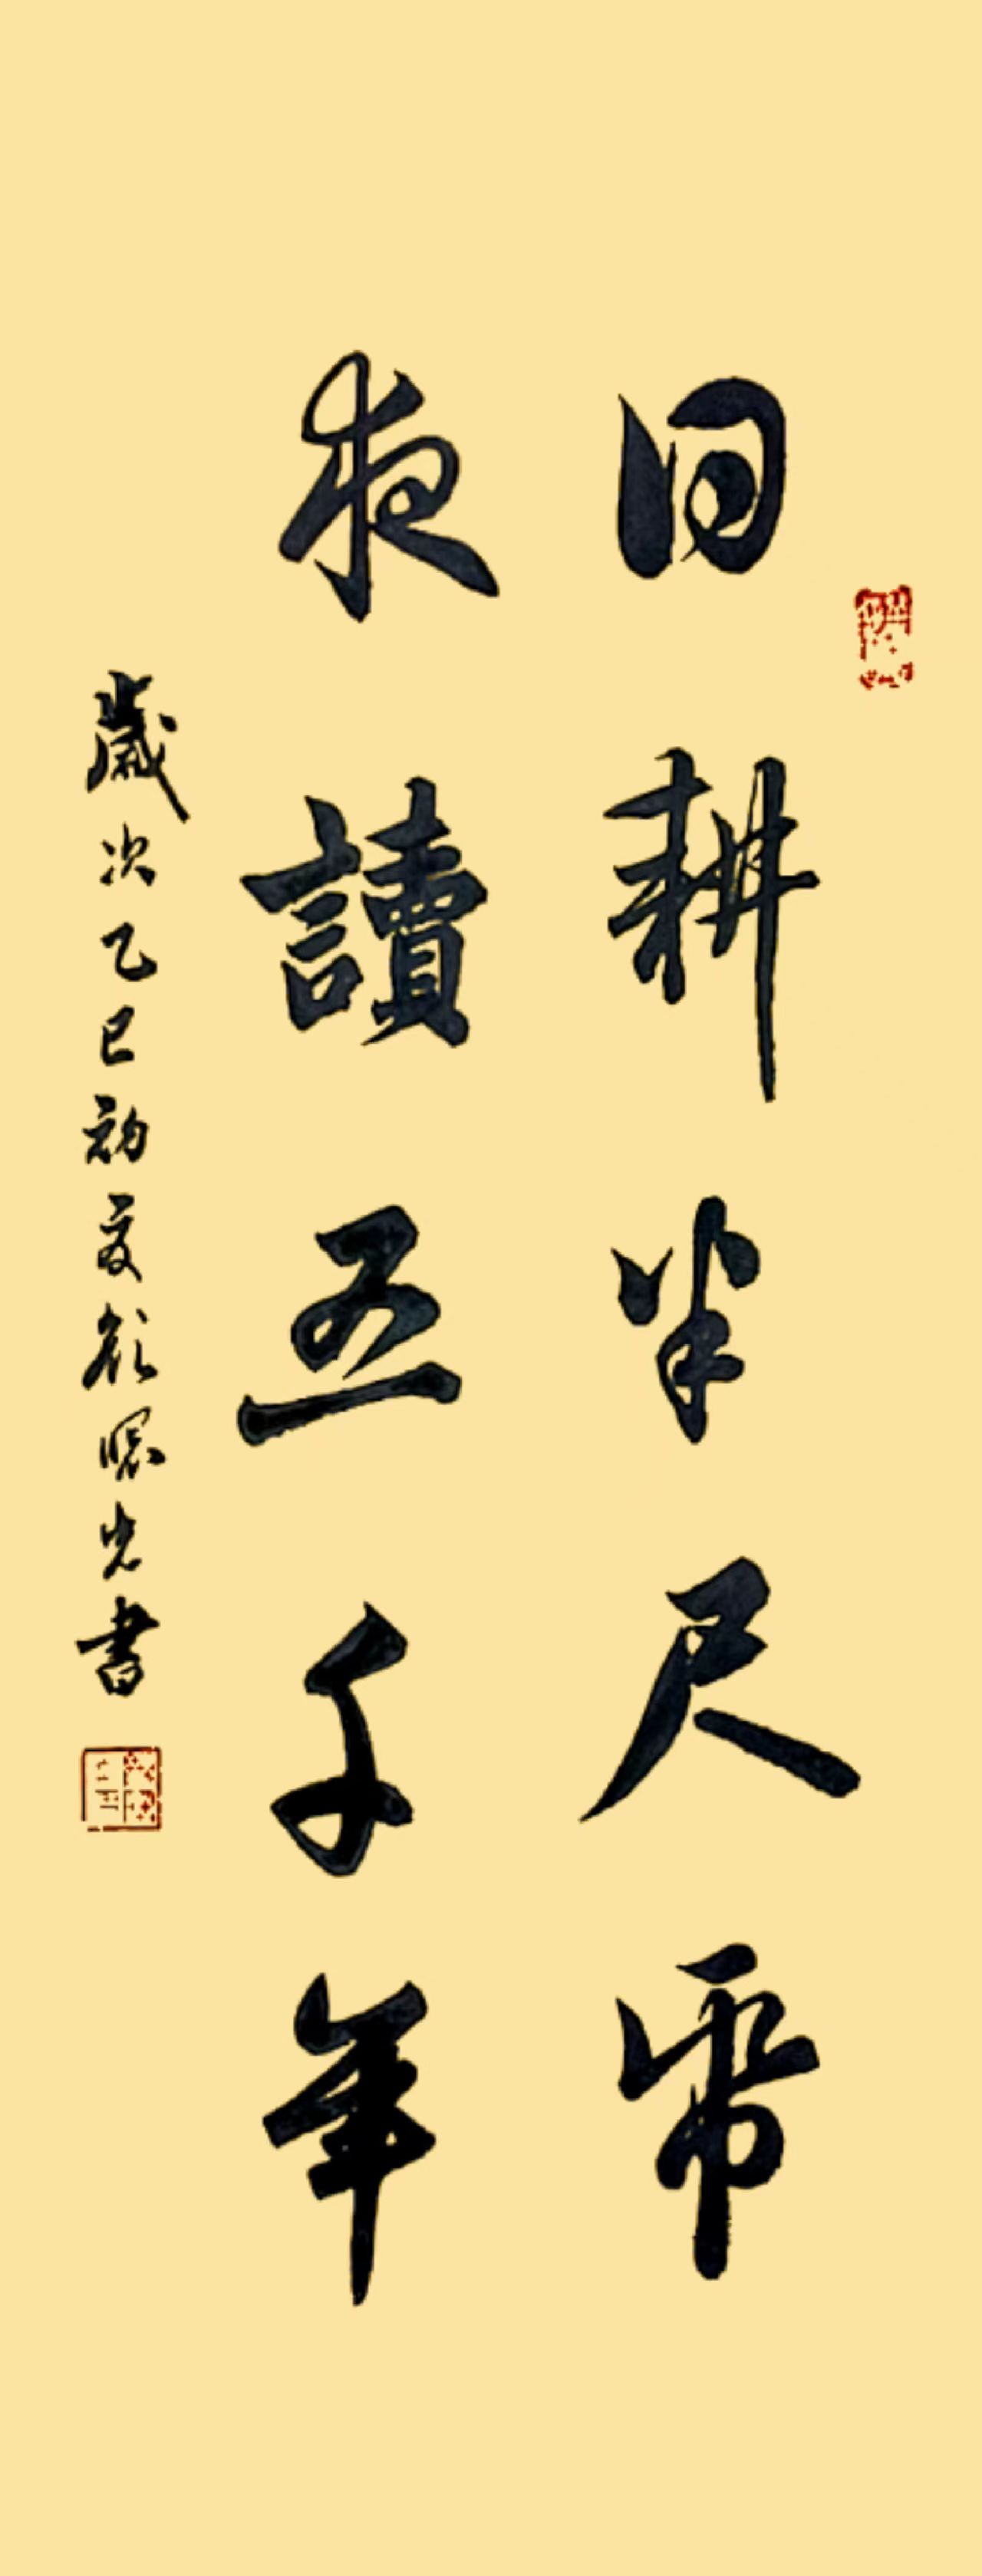 日耕半尺帋
夜讀五千年
歲次乙巳初夏 光書